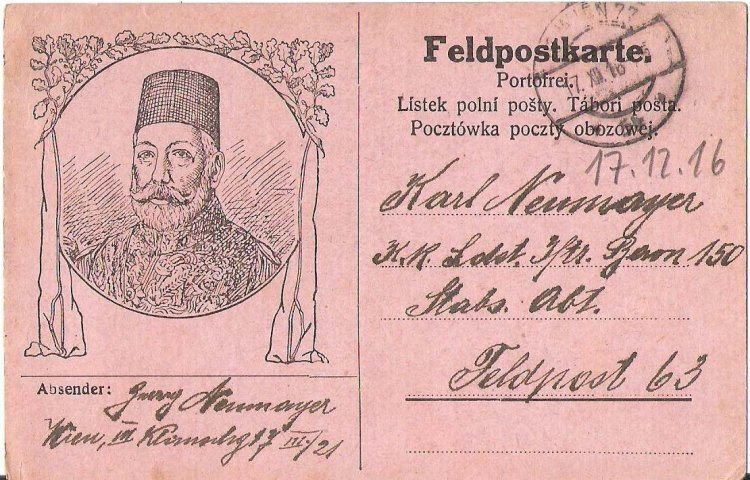 Feldpostkarte.
Portofrei.
Lístek polní pošty. Tábori posta.
Pocztówka poczty obozowej.
WIEN 77
17. XII. 16
17.12.16
Karl Neumayer
K.K. Ldst. I/Str. Baon 150
Stabs. Abt.
Feldpost 63
Absender: Georg Neumayer
Wien, III/21